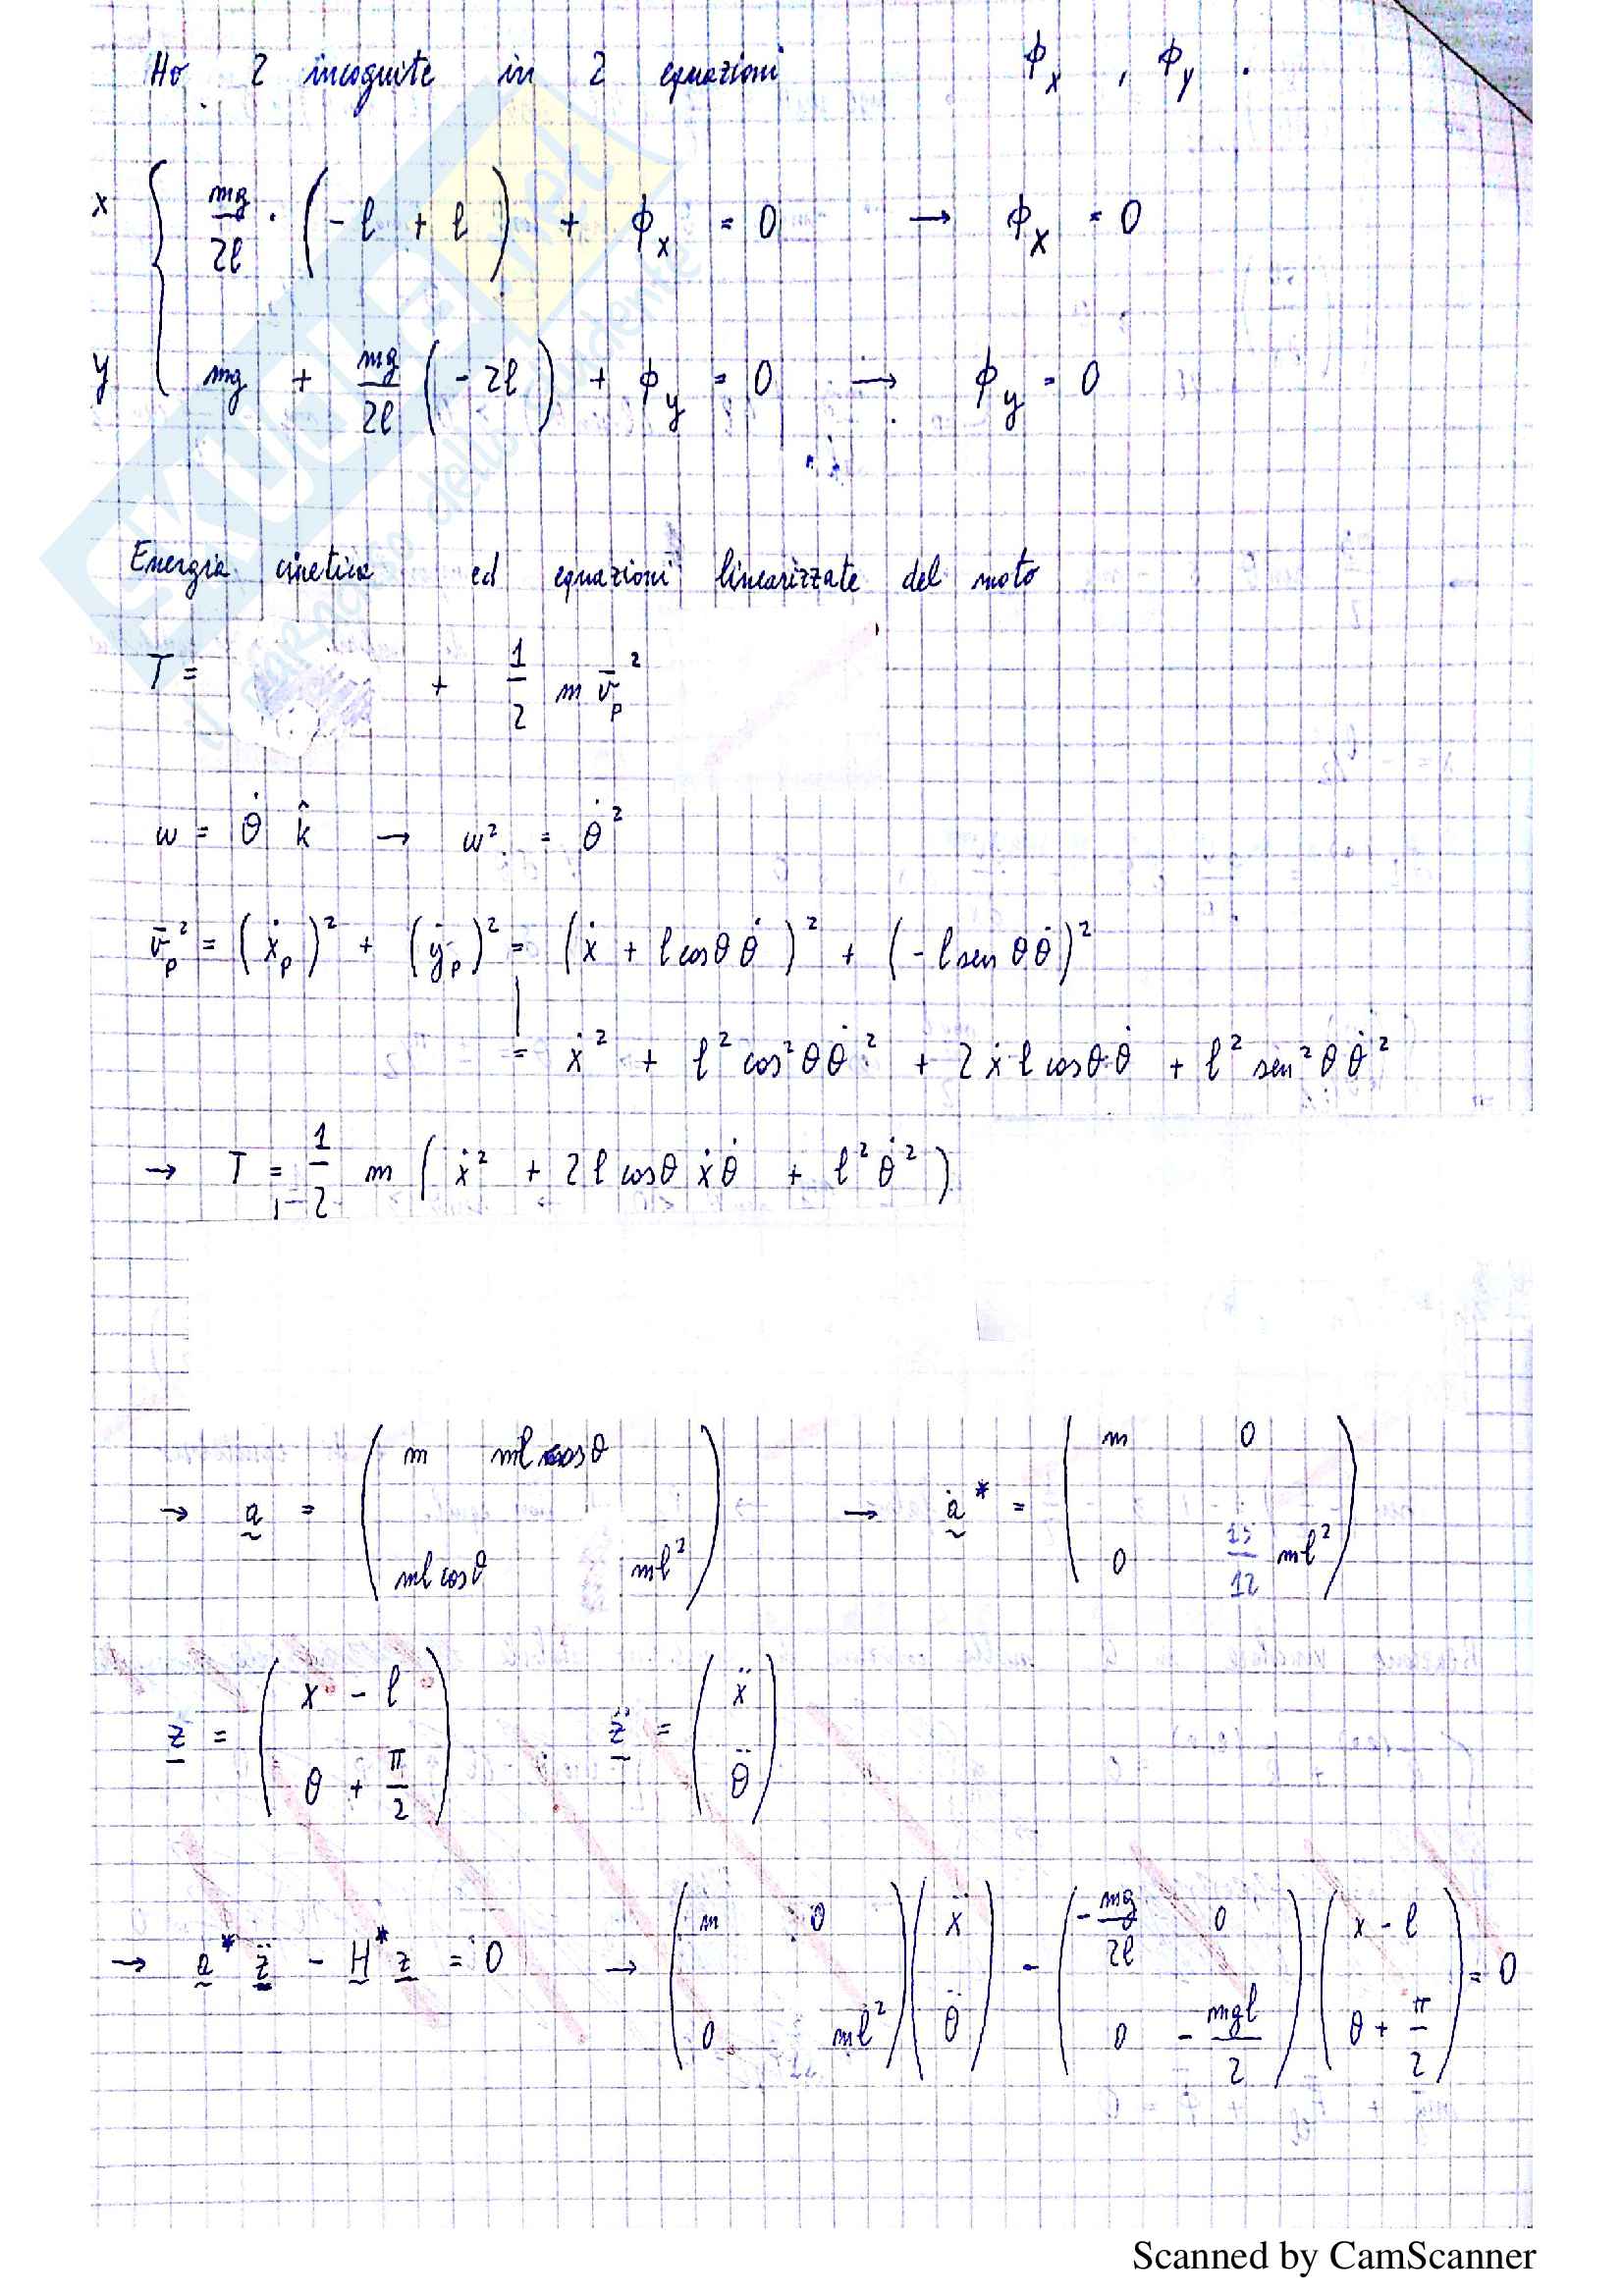 Ho 2 incognite in 2 equazioni ϕx , ϕy .
x { mg/2l · (- l + l) + ϕx = 0 → ϕx = 0
y mg + mg/2l (- 2l) + ϕy = 0 → ϕy = 0
Energia cinetica ed equazioni linearizzate del moto
T = + 1/2 m v̄p²
w = θ̇ k̂ → w² = θ̇²
v̄p² = (ẋp)² + (ẏp)² = (ẋ + l cosθ θ̇)² + (- l sen θ θ̇)²
= ẋ² + l² cos²θ θ̇² + 2 ẋ l cosθ θ̇ + l² sen²θ θ̇²
→ T = 1/2 m (ẋ² + 2 l cosθ ẋ θ̇ + l² θ̇²)
→ a = (m ml cosθ ; ml cosθ ml²) → a* = (m 0 ; 0 15/12 ml²)
z = (x - l ; θ + π/2) z̈ = (ẍ ; θ̈)
→ a* z̈ - H* z = 0 → (m 0 ; 0 ml²) (ẍ ; θ̈) - (- mg/2l 0 ; 0 - mgl/2) (x - l ; θ + π/2) = 0
Scanned by CamScanner